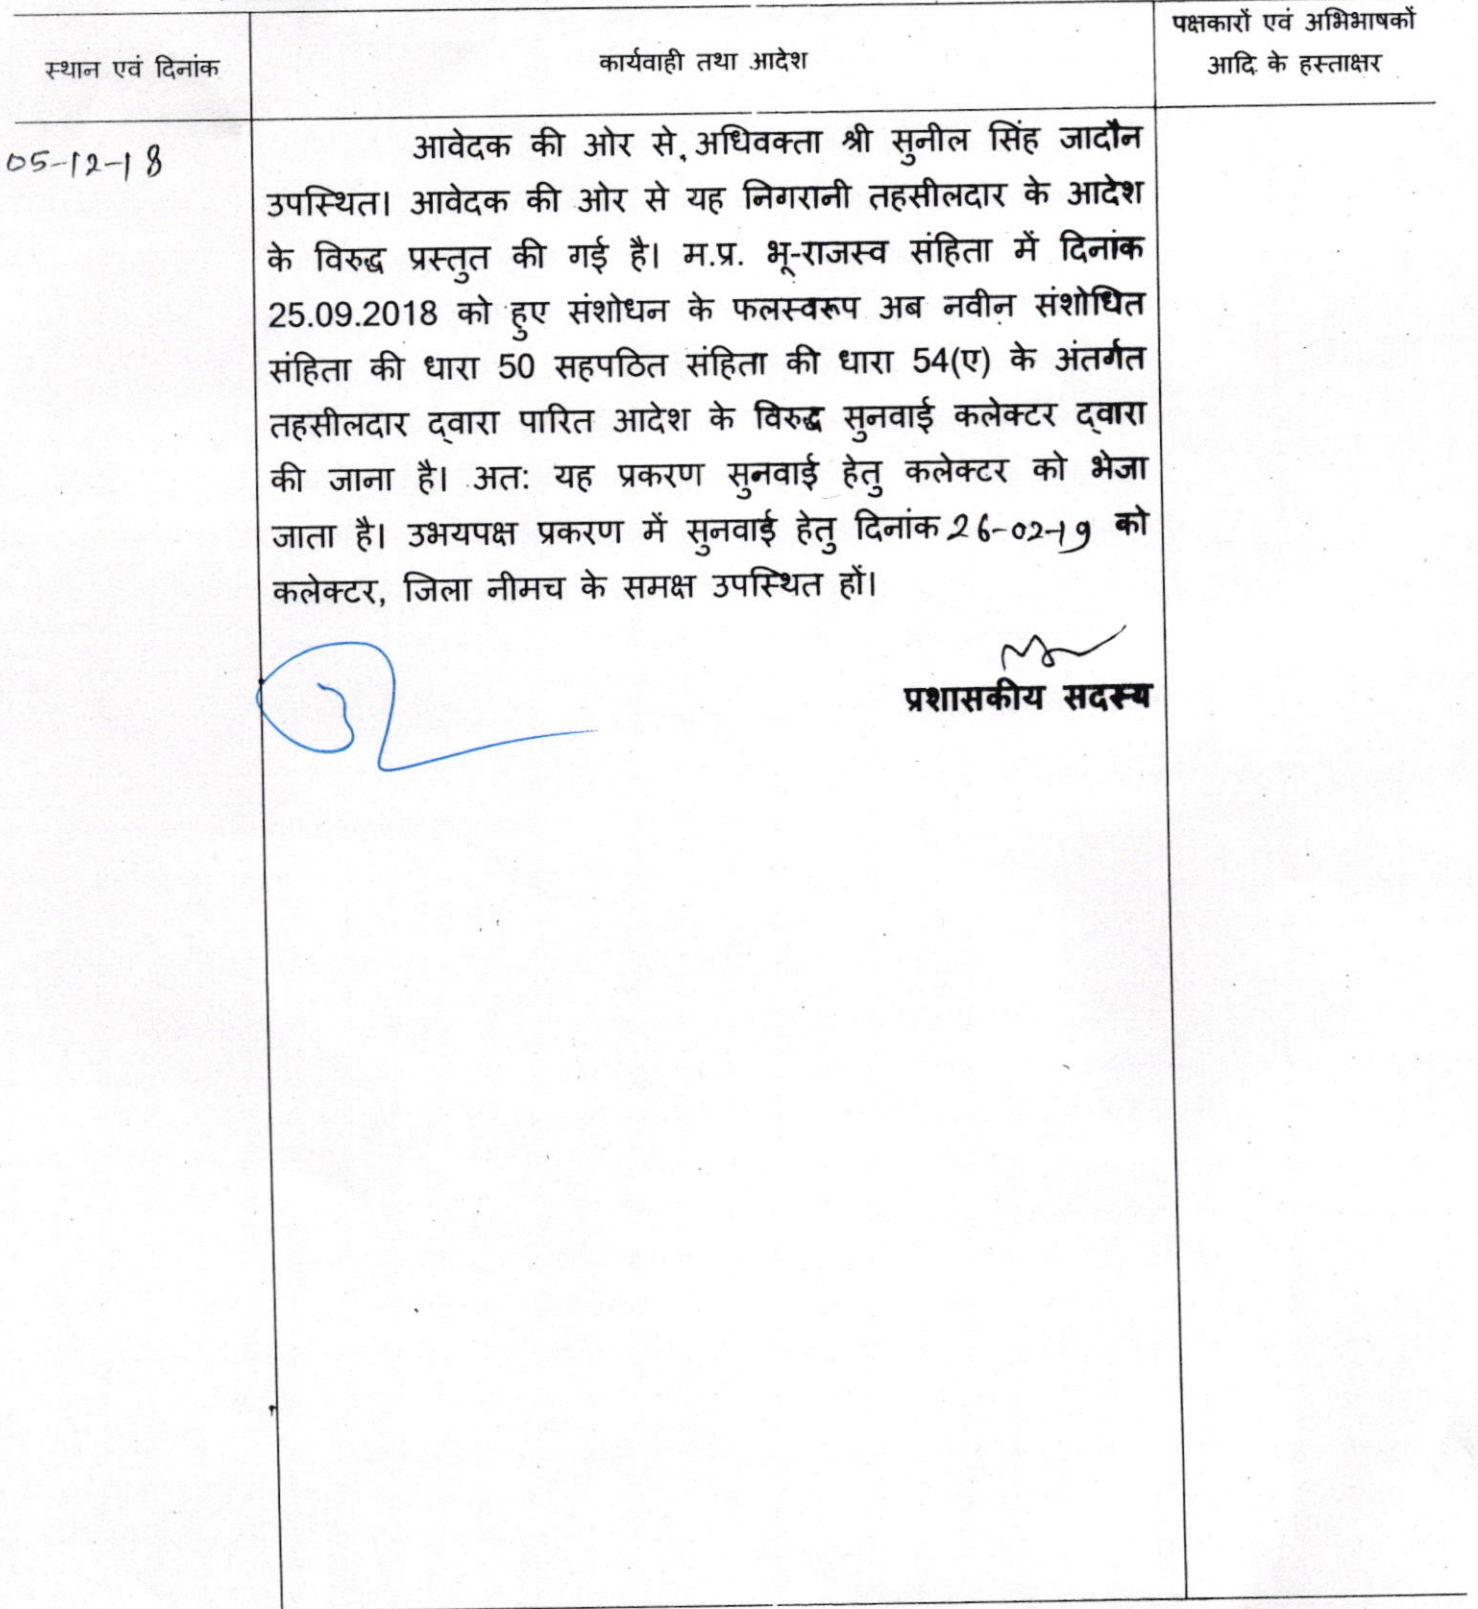 स्थान एवं दिनांक
कार्यवाही तथा आदेश
पक्षकारों एवं अभिभाषकों
आदि के हस्ताक्षर
05-12-18
आवेदक की ओर से, अधिवक्ता श्री सुनील सिंह जादौन
उपस्थित। आवेदक की ओर से यह निगरानी तहसीलदार के आदेश
के विरुद्ध प्रस्तुत की गई है। म.प्र. भू-राजस्व संहिता में दिनांक
25.09.2018 को हुए संशोधन के फलस्वरूप अब नवीन संशोधित
संहिता की धारा 50 सहपठित संहिता की धारा 54(ए) के अंतर्गत
तहसीलदार द्वारा पारित आदेश के विरुद्ध सुनवाई कलेक्टर द्वारा
की जाना है। अत: यह प्रकरण सुनवाई हेतु कलेक्टर को भेजा
जाता है। उभयपक्ष प्रकरण में सुनवाई हेतु दिनांक 26-02-19 को
कलेक्टर, जिला नीमच के समक्ष उपस्थित हों।
प्रशासकीय सदस्य